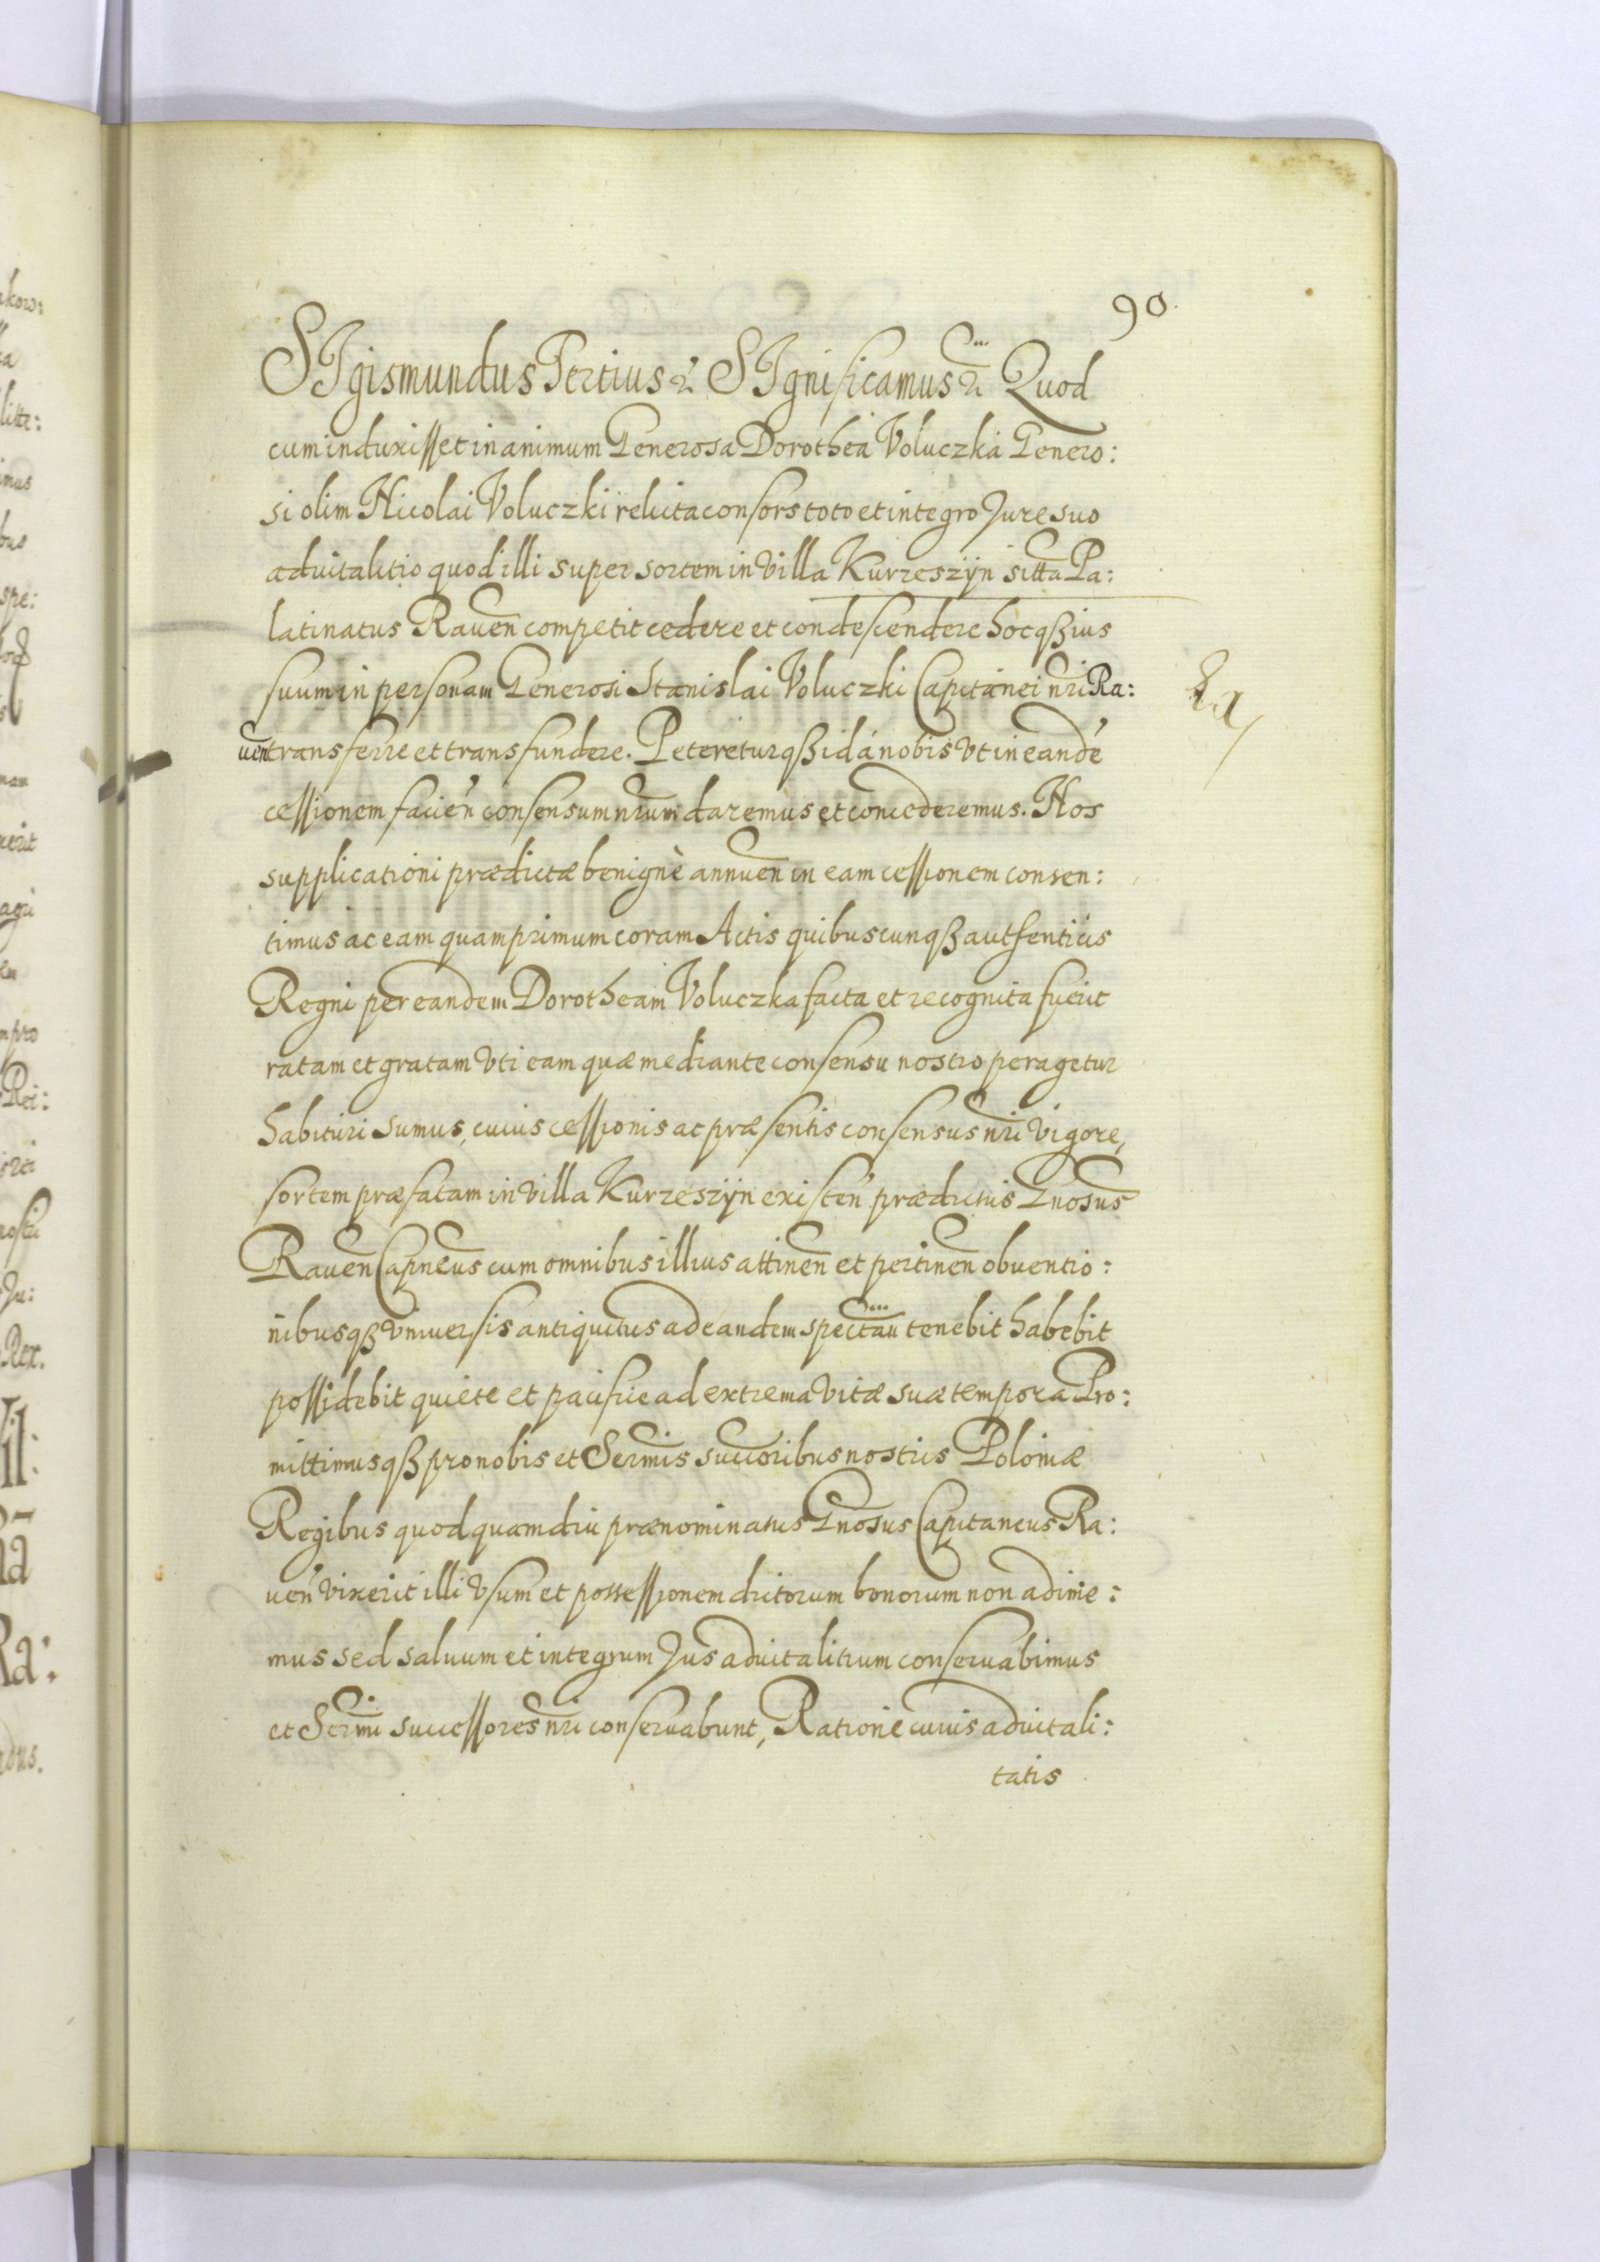 90.
SIgismundus Tertius &c SIgnificamus &c Quod
cum induxisset in animum Generosa Dorothea Voluczka Genero:
si olim Nicolai Voluczki relicta consors toto et integro Jure suo
aduitalitio quod illi super sortem in villa Kurzeszyn sitta Pa:
latinatus Rauen competit cedere et condescendere hocqß ius
suum in personam Generosi Stanislai Voluczki Capitanei nri Ra:
uen transferre et transfundere. Petereturqß id á nobis vt in eandé
cessionem facień consensum nrum daremus et concederemus. Nos
supplicationi prædictæ benignè annuen in eam cessionem consen:
timus ac eam quamprimum coram Actis quibuscunqß authenticis
Regni per eandem Dorotheam Voluczka facta et recognita fuerit
ratam et gratam vti eam quæ mediante consensu nostro peragetur
habituri sumus, cuius cessionis ac præsentis consensus nri vigore,
sortem præfatam in villa Kurzeszyn existeń prædictus Gnosus
Rauen Capneus cum omnibus illius attinen et pertinen obuentio:
nibusqß vniuersis antiquitus ad eandem spectan tenebit habebit
possidebit quiete et pacifice ad extrema vitæ suæ tempora Pro:
mittimusqß pro nobis et Sermis succoribus nostris Poloniæ
Regibus quod quamdiu prænominatus Gnosus Capitaneus Ra:
ueń vixerit illi vsum et possessionem dictorum bonorum non adime:
mus sed saluum et integrum Jus aduitalitium conseruabimus
et Sermi successores nri conseruabunt, Ratione cuius aduitali:
tatis